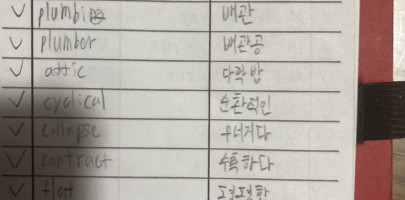 plumbing 배관
plumber 배관공
attic 다락방
cyclical 순환적인
collapse 무너지다
contract 수축하다
flat 평평한